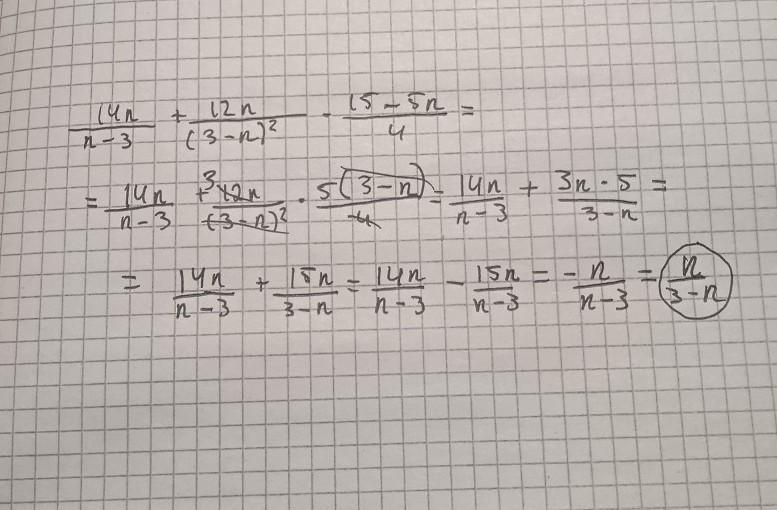 14n/(n-3) + 12n/(3-n)² · (15-5n)/4 =
= 14n/(n-3) + ³12n/(3-n)² · 5(3-n)/4 = 14n/(n-3) + 3n·5/(3-n) =
= 14n/(n-3) + 15n/(3-n) = 14n/(n-3) - 15n/(n-3) = -n/(n-3) = n/(3-n)